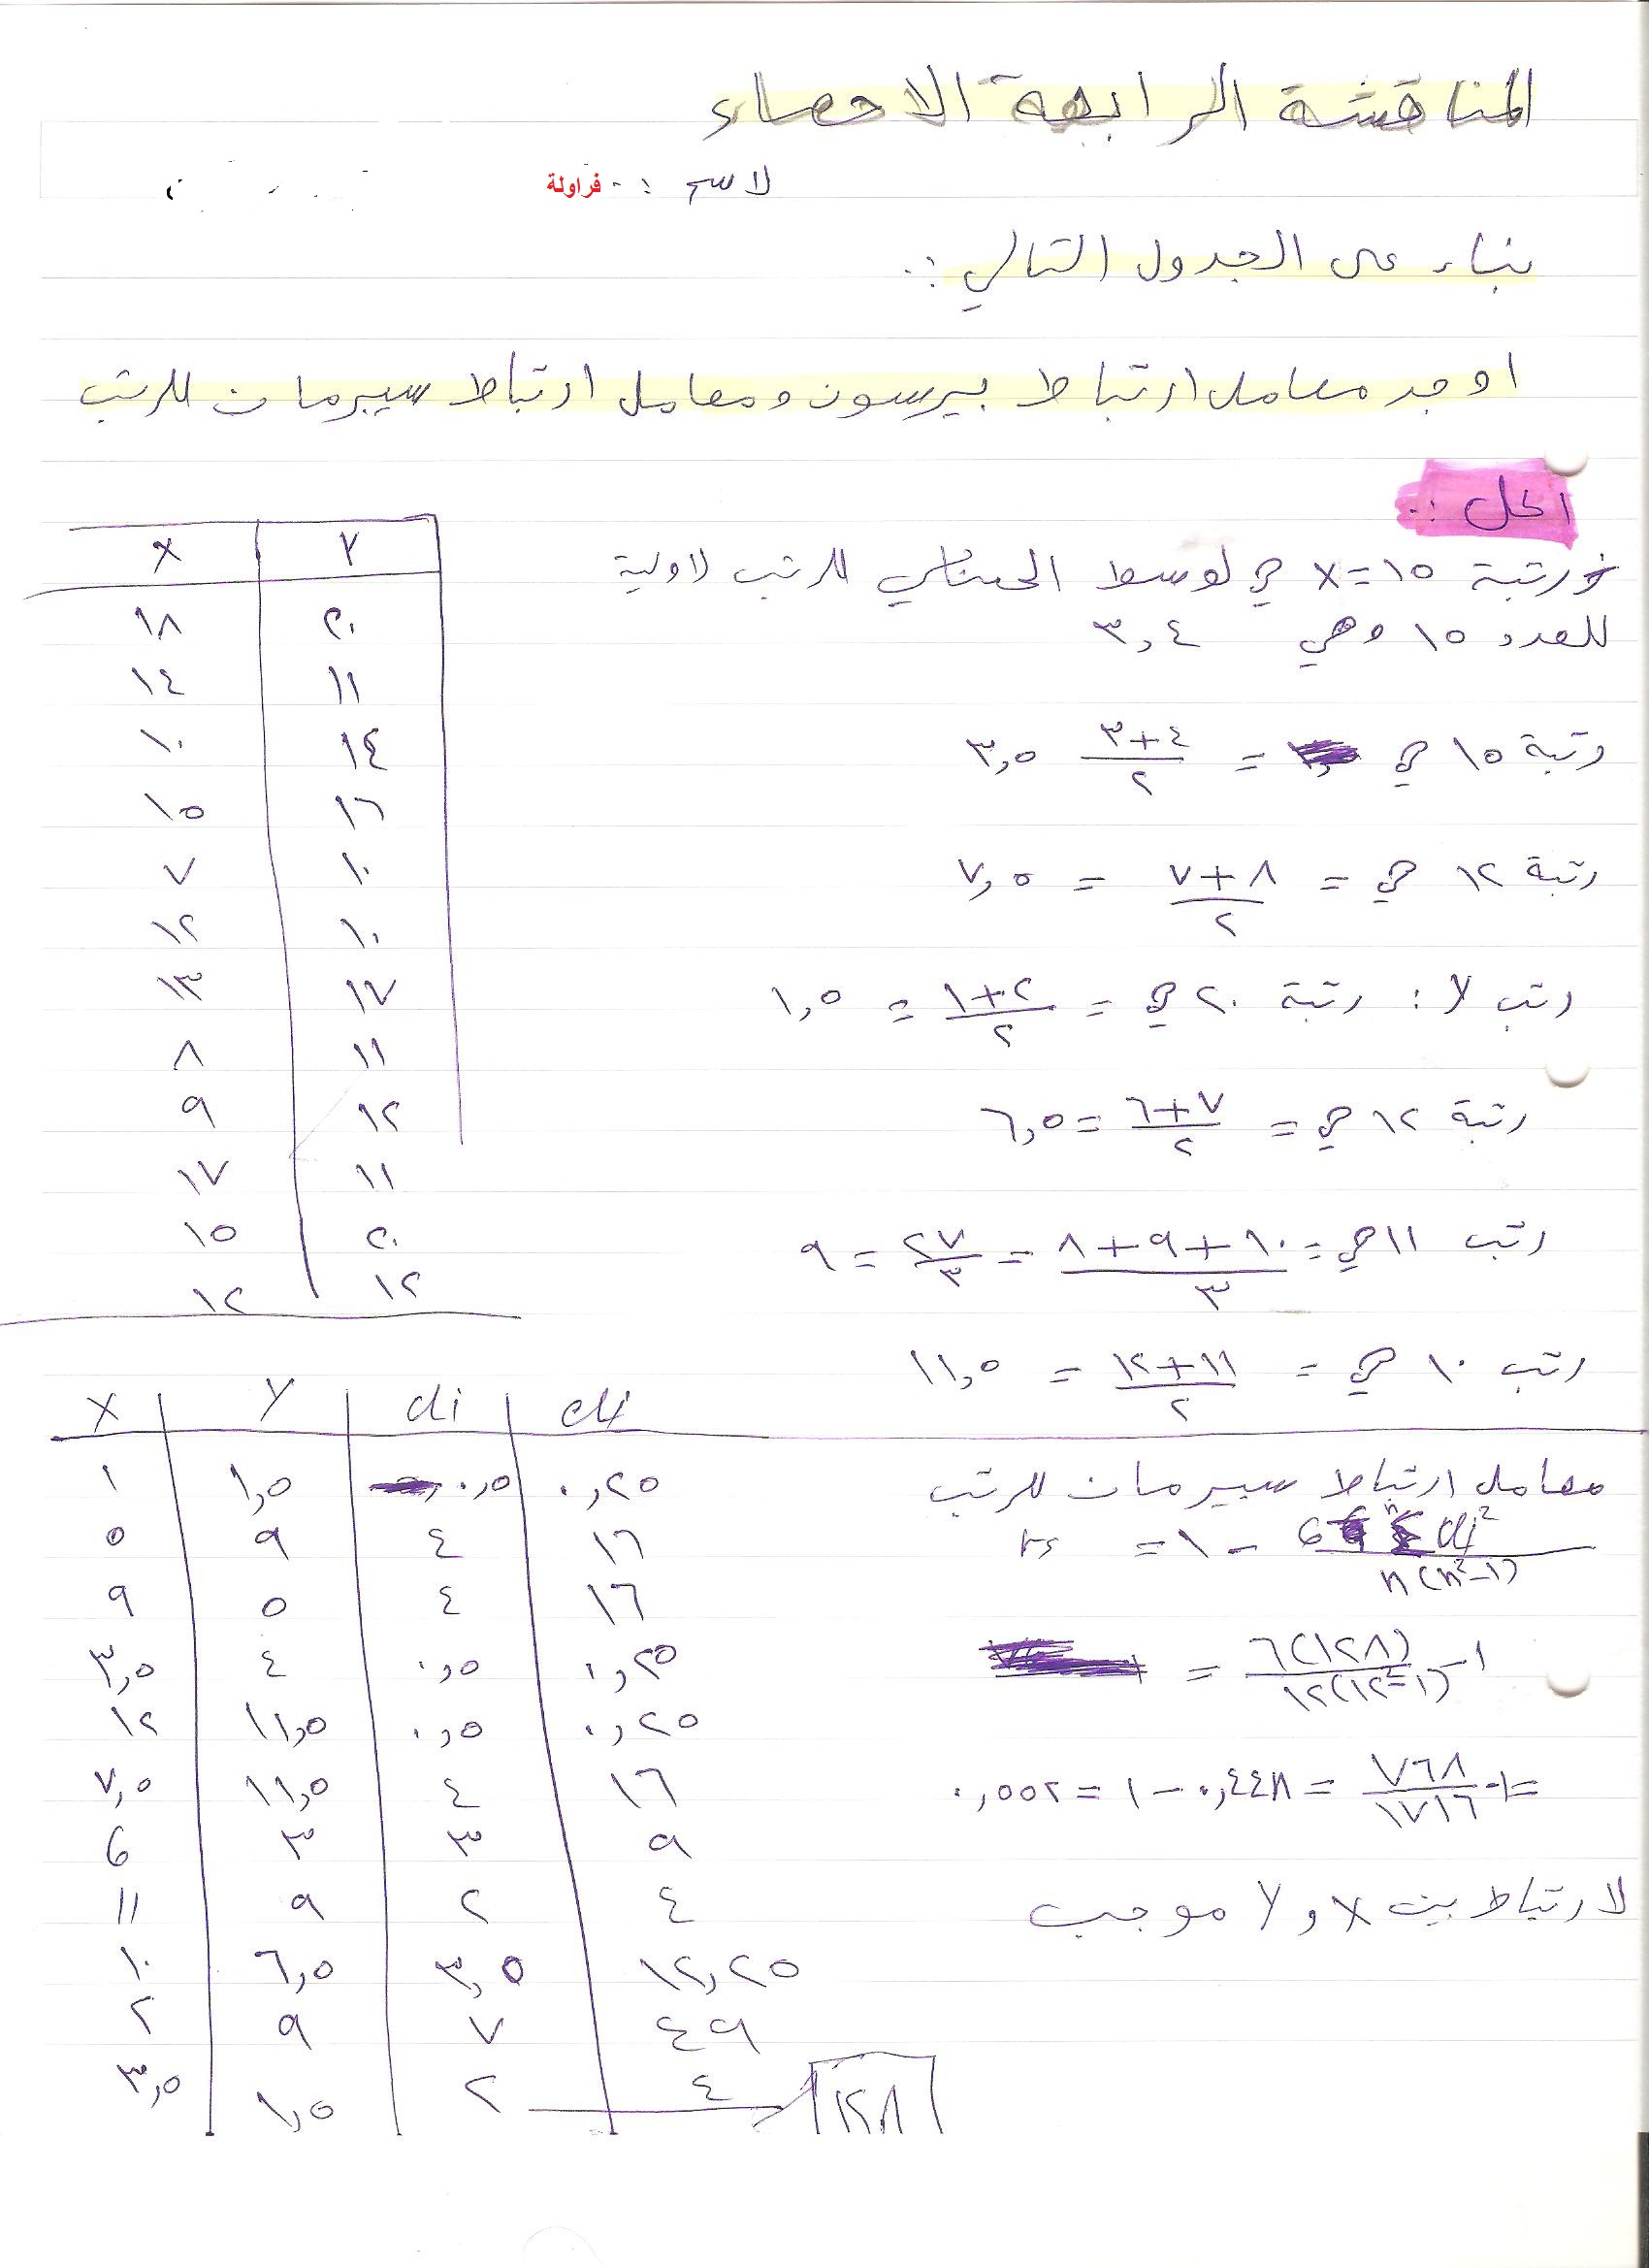 المناقشة الرابعة الاحصاء
لاسم :. فراولة
بناء على الجدول التالي :.
اوجد معامل ارتباط بيرسون ومعامل ارتباط سيبرمان للرتب
الحل :.
X | Y
١٨ | ٢٠
١٤ | ١١
١٠ | ١٤
١٥ | ١٦
٧ | ١٠
١٢ | ١٠
١٣ | ١٧
٨ | ١١
٩ | ١٢
١٧ | ١١
١٥ | ٢٠
١٢ | ١٢
رتبة ١٥=X هي لوسط الحسابي للرتب لاولية
للعدد ١٥ وهي ٣,٤
رتبة ١٥ هي = ٣+٤/٢ ٣,٥
رتبة ١٢ هي = ٧+٨/٢ = ٧,٥
رتب Y : رتبة ٢٠ هي = ١+٢/٢ = ١,٥
رتبة ١٢ هي = ٦+٧/٢ = ٦,٥
رتب ١١ هي = ٨+٩+١٠/٣ = ٢٧/٣ = ٩
رتب ١٠ هي = ١٢+١١/٢ = ١١,٥
X | Y | di | di
١ | ١,٥ | ٠,٥ | ٠,٢٥
٥ | ٩ | ٤ | ١٦
٩ | ٥ | ٤ | ١٦
٣,٥ | ٤ | ٠,٥ | ٠,٢٥
١٢ | ١١,٥ | ٠,٥ | ٠,٢٥
٧,٥ | ١١,٥ | ٤ | ١٦
6 | ٣ | ٣ | ٩
١١ | ٩ | ٢ | ٤
١٠ | ٦,٥ | ٣,٥ | ١٢,٢٥
٢ | ٩ | ٧ | ٤٩
٣,٥ | ١,٥ | ٢ | ٤
١٢٨
معامل ارتباط سبيرمان للرتب
rs = ١ - 6 Σ di²/n(n²-١)
١- ٦(١٢٨)/١٢(١٢²-١) =
=١- ٧٦٨/١٧١٦ = ٠,٤٤٨ - ١ = ٠,٥٥٢
لارتباط بين X و Y موجب